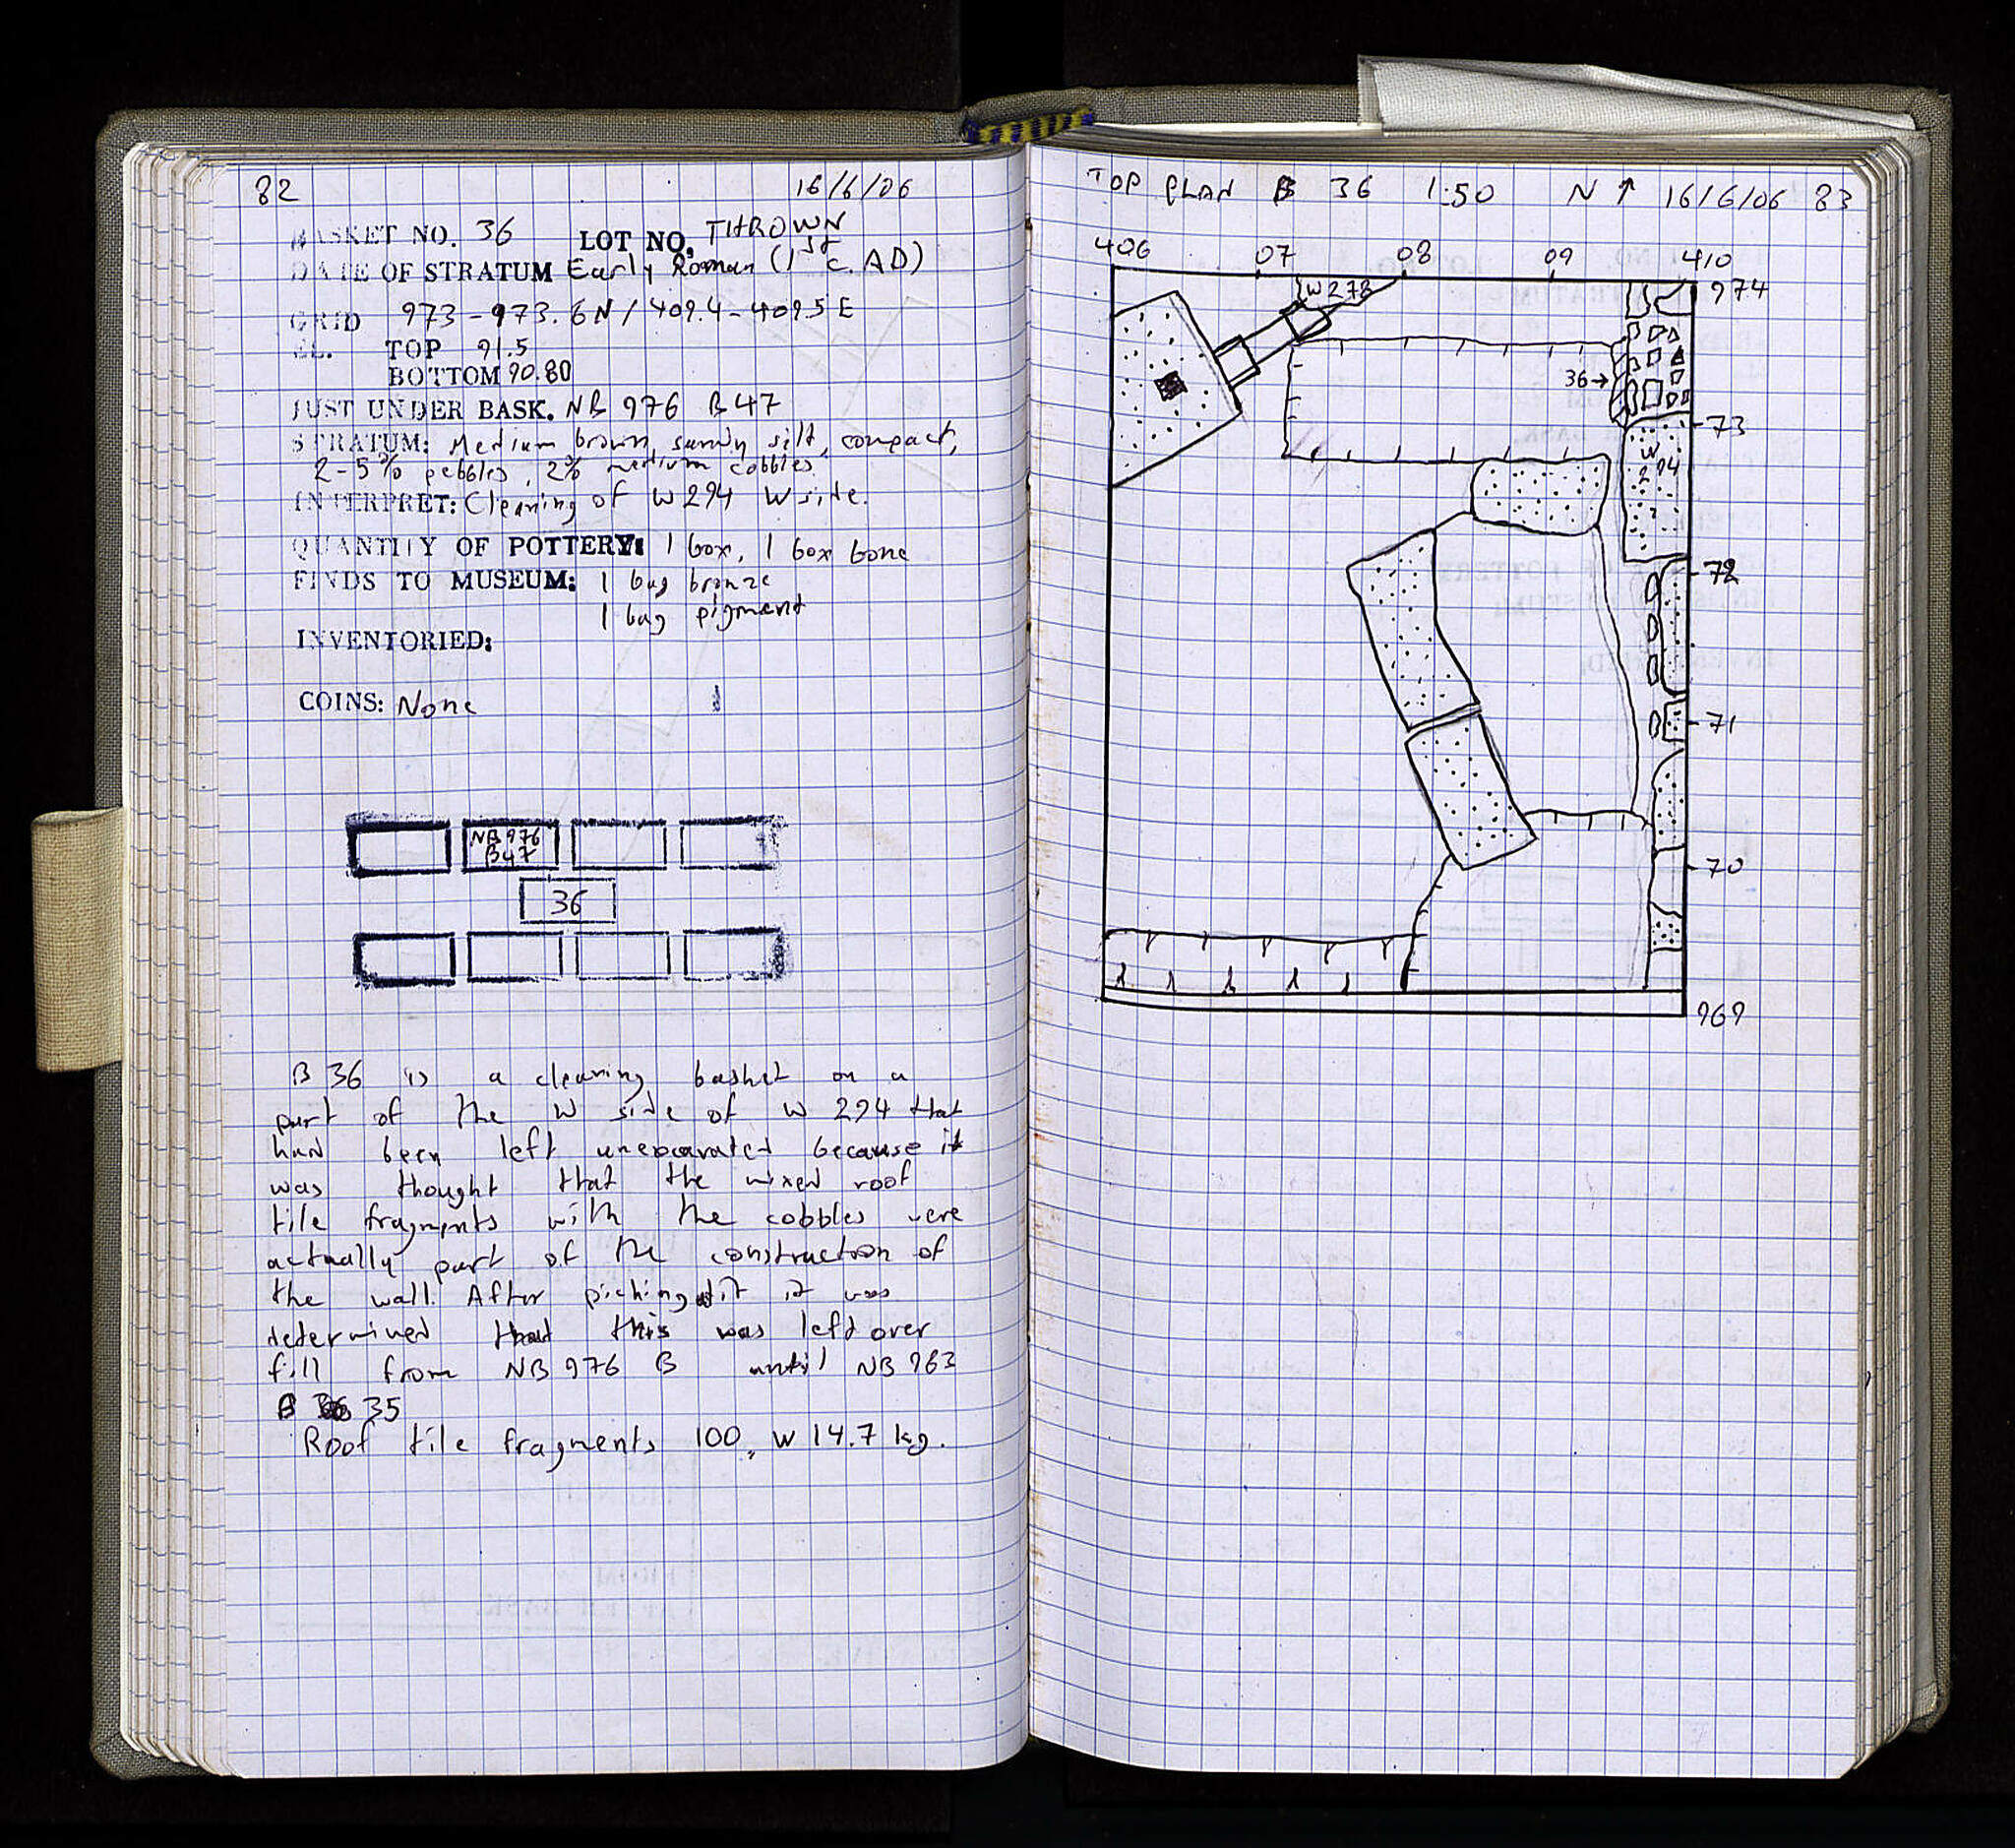 82 16/6/06
BASKET NO. 36 LOT NO. THROWN
DATE OF STRATUM Early Roman (1st c. AD)
GRID 973-973.6N/409.4-409.5E
EL. TOP 91.5
BOTTOM 90.80
JUST UNDER BASK. NB 976 B47
STRATUM: Medium brown, sandy silt, compact,
2-5% pebbles, 2% medium cobbles
INTERPRET: Cleaning of W294 W side.
QUANTITY OF POTTERY: 1 box, 1 box bone
FINDS TO MUSEUM: 1 bag bronze
1 bag pigment
INVENTORIED:
COINS: None
NB 976
B47
36
B 36 is a cleaning basket on a
part of the W side of W 294 that
had been left unexcavated because it
was thought that the mixed roof
tile fragments with the cobbles were
actually part of the construction of
the wall. After picking it it was
determined that this was left over
fill from NB 976 B until NB 963
B 35
Roof tile fragments 100, w 14.7 kg.
TOP PLAN B 36 1:50 N ↑ 16/6/06 83
406 07 08 09 410
974
W278
36→
73
W
294
72
71
70
969